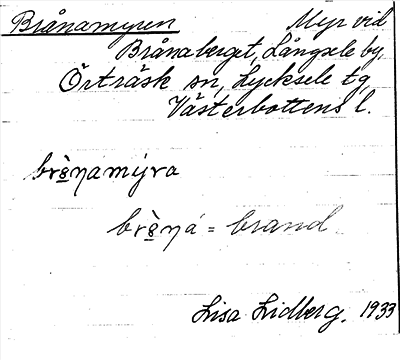 Brånamyren Myr vid
Brånaberget, Långsele by,
Örträsk sn, Lycksele tg,
Västerbottens l.
brò̤ŋamýra
brò̤ŋá = brand
Lisa Lidberg. 1933